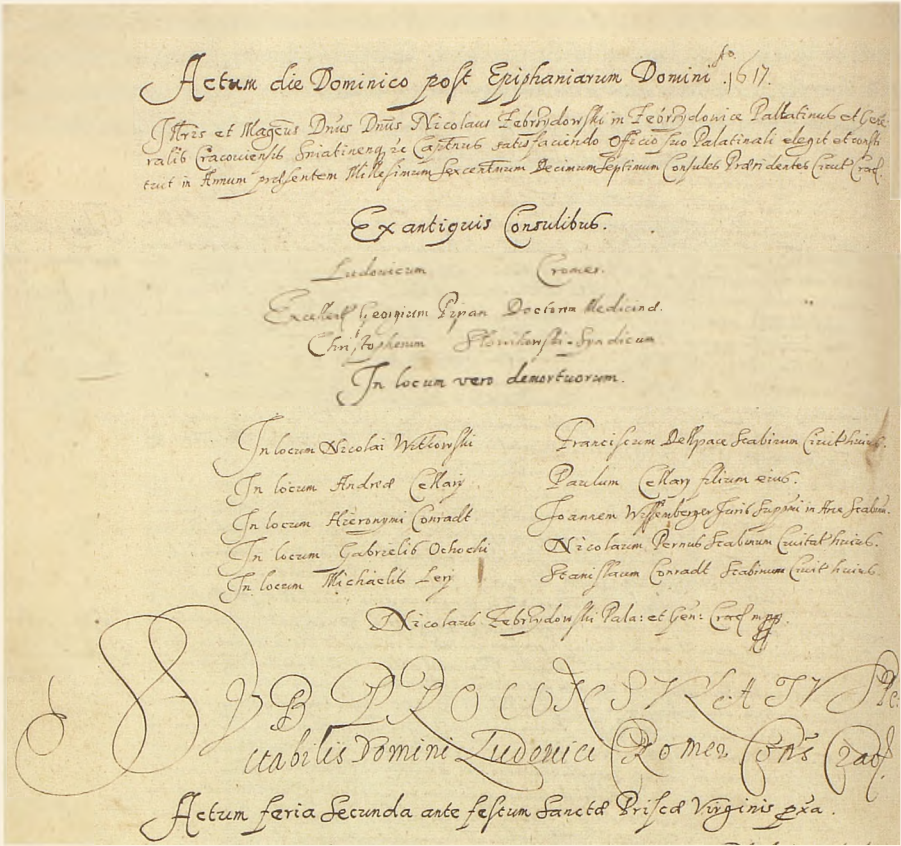 Actum die Dominico post Epiphaniarum Domini Ao. 1617.
Illris et Mageus Dnus Dnus Nicolaus Zebrzydowski in Zebrzydowice Pallatinus et Gene
ralis Cracouiensis Sniatinensq ꝛc Captnus satisfaciendo Officio suo Palatinali elegit et consti
tuit in Annum præsentem Millesimum Sexcentnum Decimumseptimum Consules Præsidentes Ciuit Crac.
Ex antiquis Consulibus.
Ludouicum Cromer.
Excellent Georgium Pipan Doctorem Medicinæ.
Christophorum Słowikowski - Syndicum
In locum vero demortuorum.
In locum Nicolai Witkowski Franciscum Dellpace Scabinum Ciuit huius.
In locum Andreæ Cellary Paulum Cellary filium eius.
In locum Hieronymi Conradt Joannem Wissemberger Juris Suppmi in Arce Scabin.
In locum Gabrielis Ochocki Nicolaum Pernus Scabinum Ciuitat huius.
In locum Michaelis Leÿ Stanislaum Conradt Scabinum Ciuit huius.
Nicolaus Zebrzydowski Pala: et Gen: Crac mpp
SVB PROCONSVLATV Spe
ctabilis Domini Ludouici Cromer Cons Crac.
Actum feria Secunda ante festum Sanctæ Priscæ Virginis pxa.